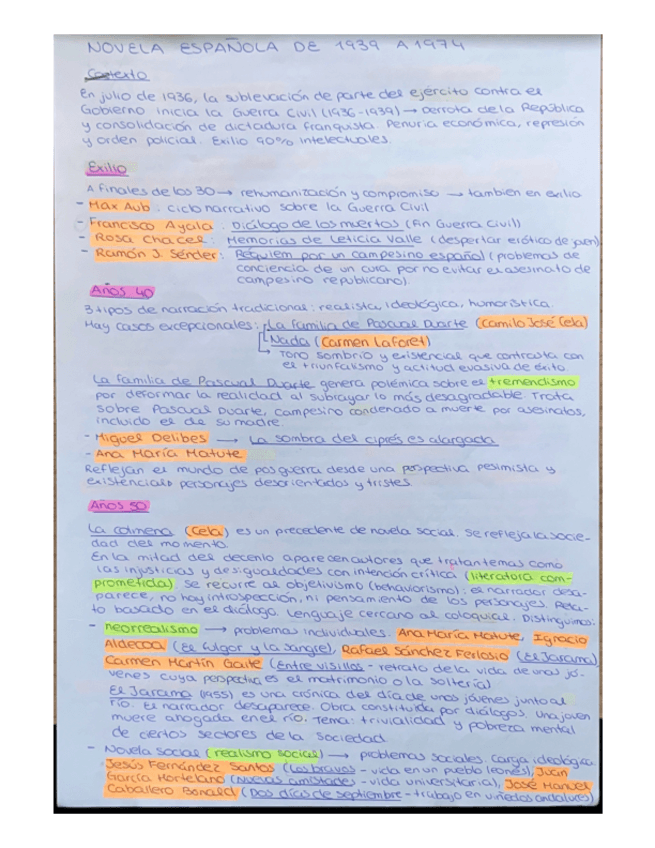 NOVELA ESPAÑOLA DE 1939 A 1974
Contexto
En julio de 1936, la sublevación de parte del ejército contra el
Gobierno inicia la Guerra Civil (1936-1939) → derrota de la República
y consolidación de dictadura franquista. Penuria económica, represión
y orden policial. Exilio 90% intelectuales.
Exilio
A finales de los 30 → rehumanización y compromiso → también en exilio
- Max Aub: ciclo narrativo sobre la Guerra Civil
- Francisco Ayala: Diálogo de los muertos (fin Guerra Civil)
- Rosa Chacel: Memorias de Leticia Valle (despertar erótico de joven)
- Ramón J. Sénder: Réquiem por un campesino español (problemas de
conciencia de un cura por no evitar el asesinato de
campesino republicano).
Años 40
3 tipos de narración tradicional: realista, ideológica, humorística.
Hay casos excepcionales: La familia de Pascual Duarte (Camilo José Cela)
Nada (Carmen Laforet)
Tono sombrío y existencial que contrasta con
el triunfalismo y actitud evasiva de éxito.
La familia de Pascual Duarte genera polémica sobre el tremendismo
por deformar la realidad al subrayar lo más desagradable. Trata
sobre Pascual Duarte, campesino condenado a muerte por asesinatos,
incluido el de su madre.
- Miguel Delibes → La sombra del ciprés es alargada
- Ana María Matute
Reflejan el mundo de posguerra desde una perspectiva pesimista y
existencial, personajes desorientados y tristes.
Años 50
La colmena (Cela) es un precedente de novela social. Se refleja la socie-
dad del momento.
En la mitad del decenio aparecen autores que tratan temas como
las injusticias y desigualdades con intención crítica (literatura com-
prometida). Se recurre al objetivismo (behaviorismo): el narrador desa-
parece, no hay introspección, ni pensamiento de los personajes. Rela-
to basado en el diálogo. Lenguaje cercano al coloquial. Distinguimos:
- neorrealismo → problemas individuales. Ana María Matute, Ignacio
Aldecoa (El fulgor y la sangre), Rafael Sánchez Ferlosio (El Jarama),
Carmen Martín Gaite (Entre visillos - retrato de la vida de unas jó-
venes cuya perspectiva es el matrimonio o la soltería)
El Jarama (1955) es una crónica del día de unos jóvenes junto al
río. El narrador desaparece. Obra constituida por diálogos. Una joven
muere ahogada en el río. Tema: trivialidad y pobreza mental
de ciertos sectores de la sociedad.
- Novela social (realismo social) → problemas sociales. Carga ideológica.
Jesús Fernández Santos (Los bravos - vida en un pueblo leonés), Juan
García Hortelano (Nuevas amistades - vida universitaria), José Manuel
Caballero Bonald (Dos días de septiembre - trabajo en viñedos andaluces)